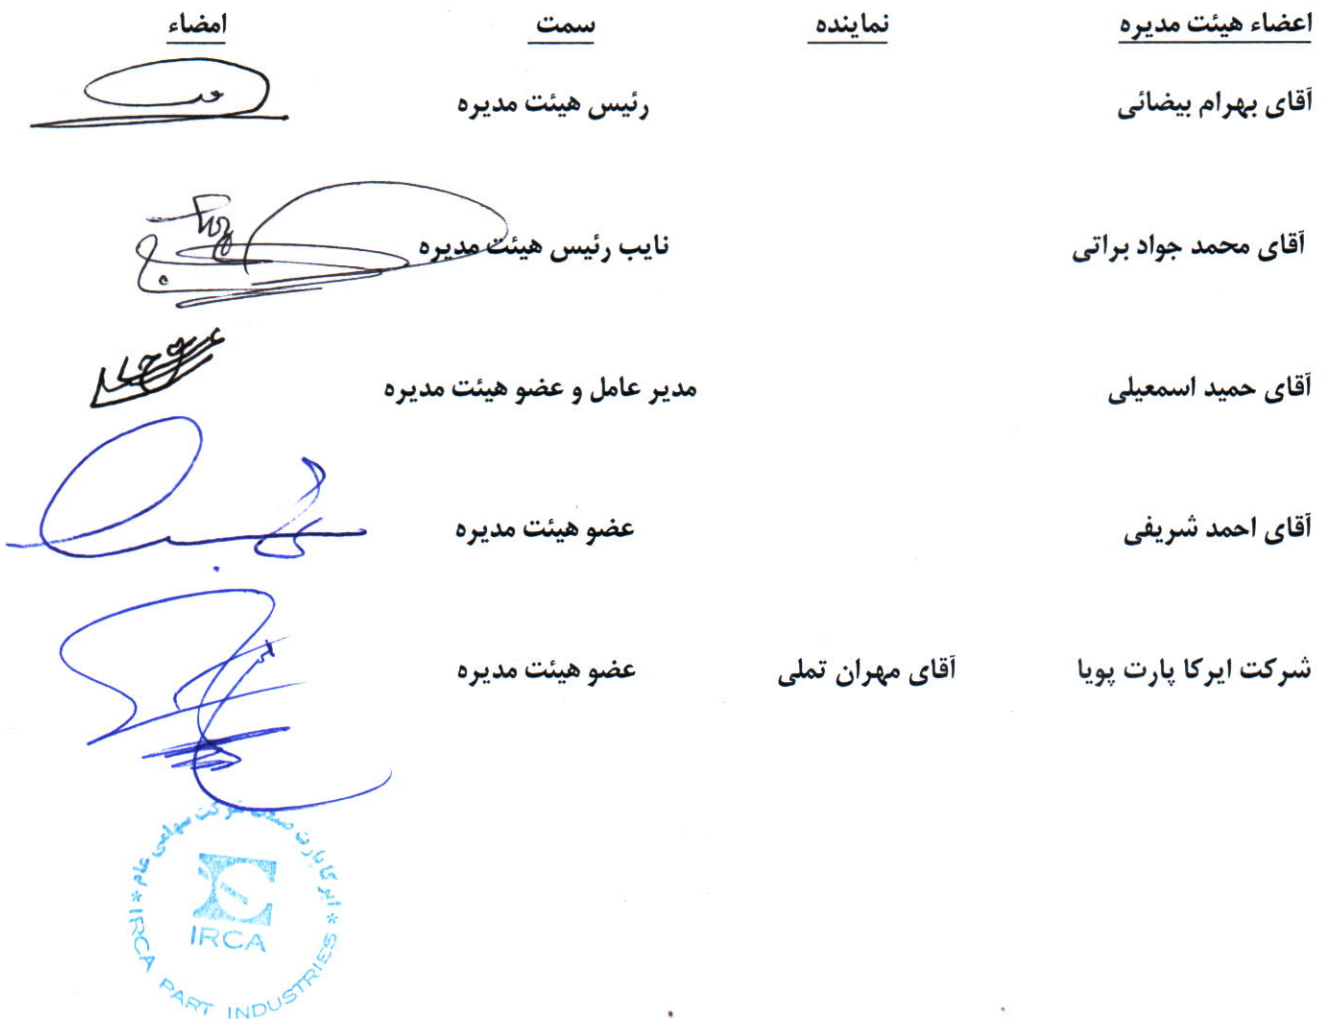 اعضاء هیئت مدیره نماینده سمت امضاء
آقای بهرام بیضائی رئیس هیئت مدیره
آقای محمد جواد براتی نایب رئیس هیئت مدیره
آقای حمید اسمعیلی مدیر عامل و عضو هیئت مدیره
آقای احمد شریفی عضو هیئت مدیره
شرکت ایرکا پارت پویا آقای مهران تملی عضو هیئت مدیره
ایرکا پارت صنعت شرکت سهامی عام
IRCA
IRCA PART INDUSTRIES